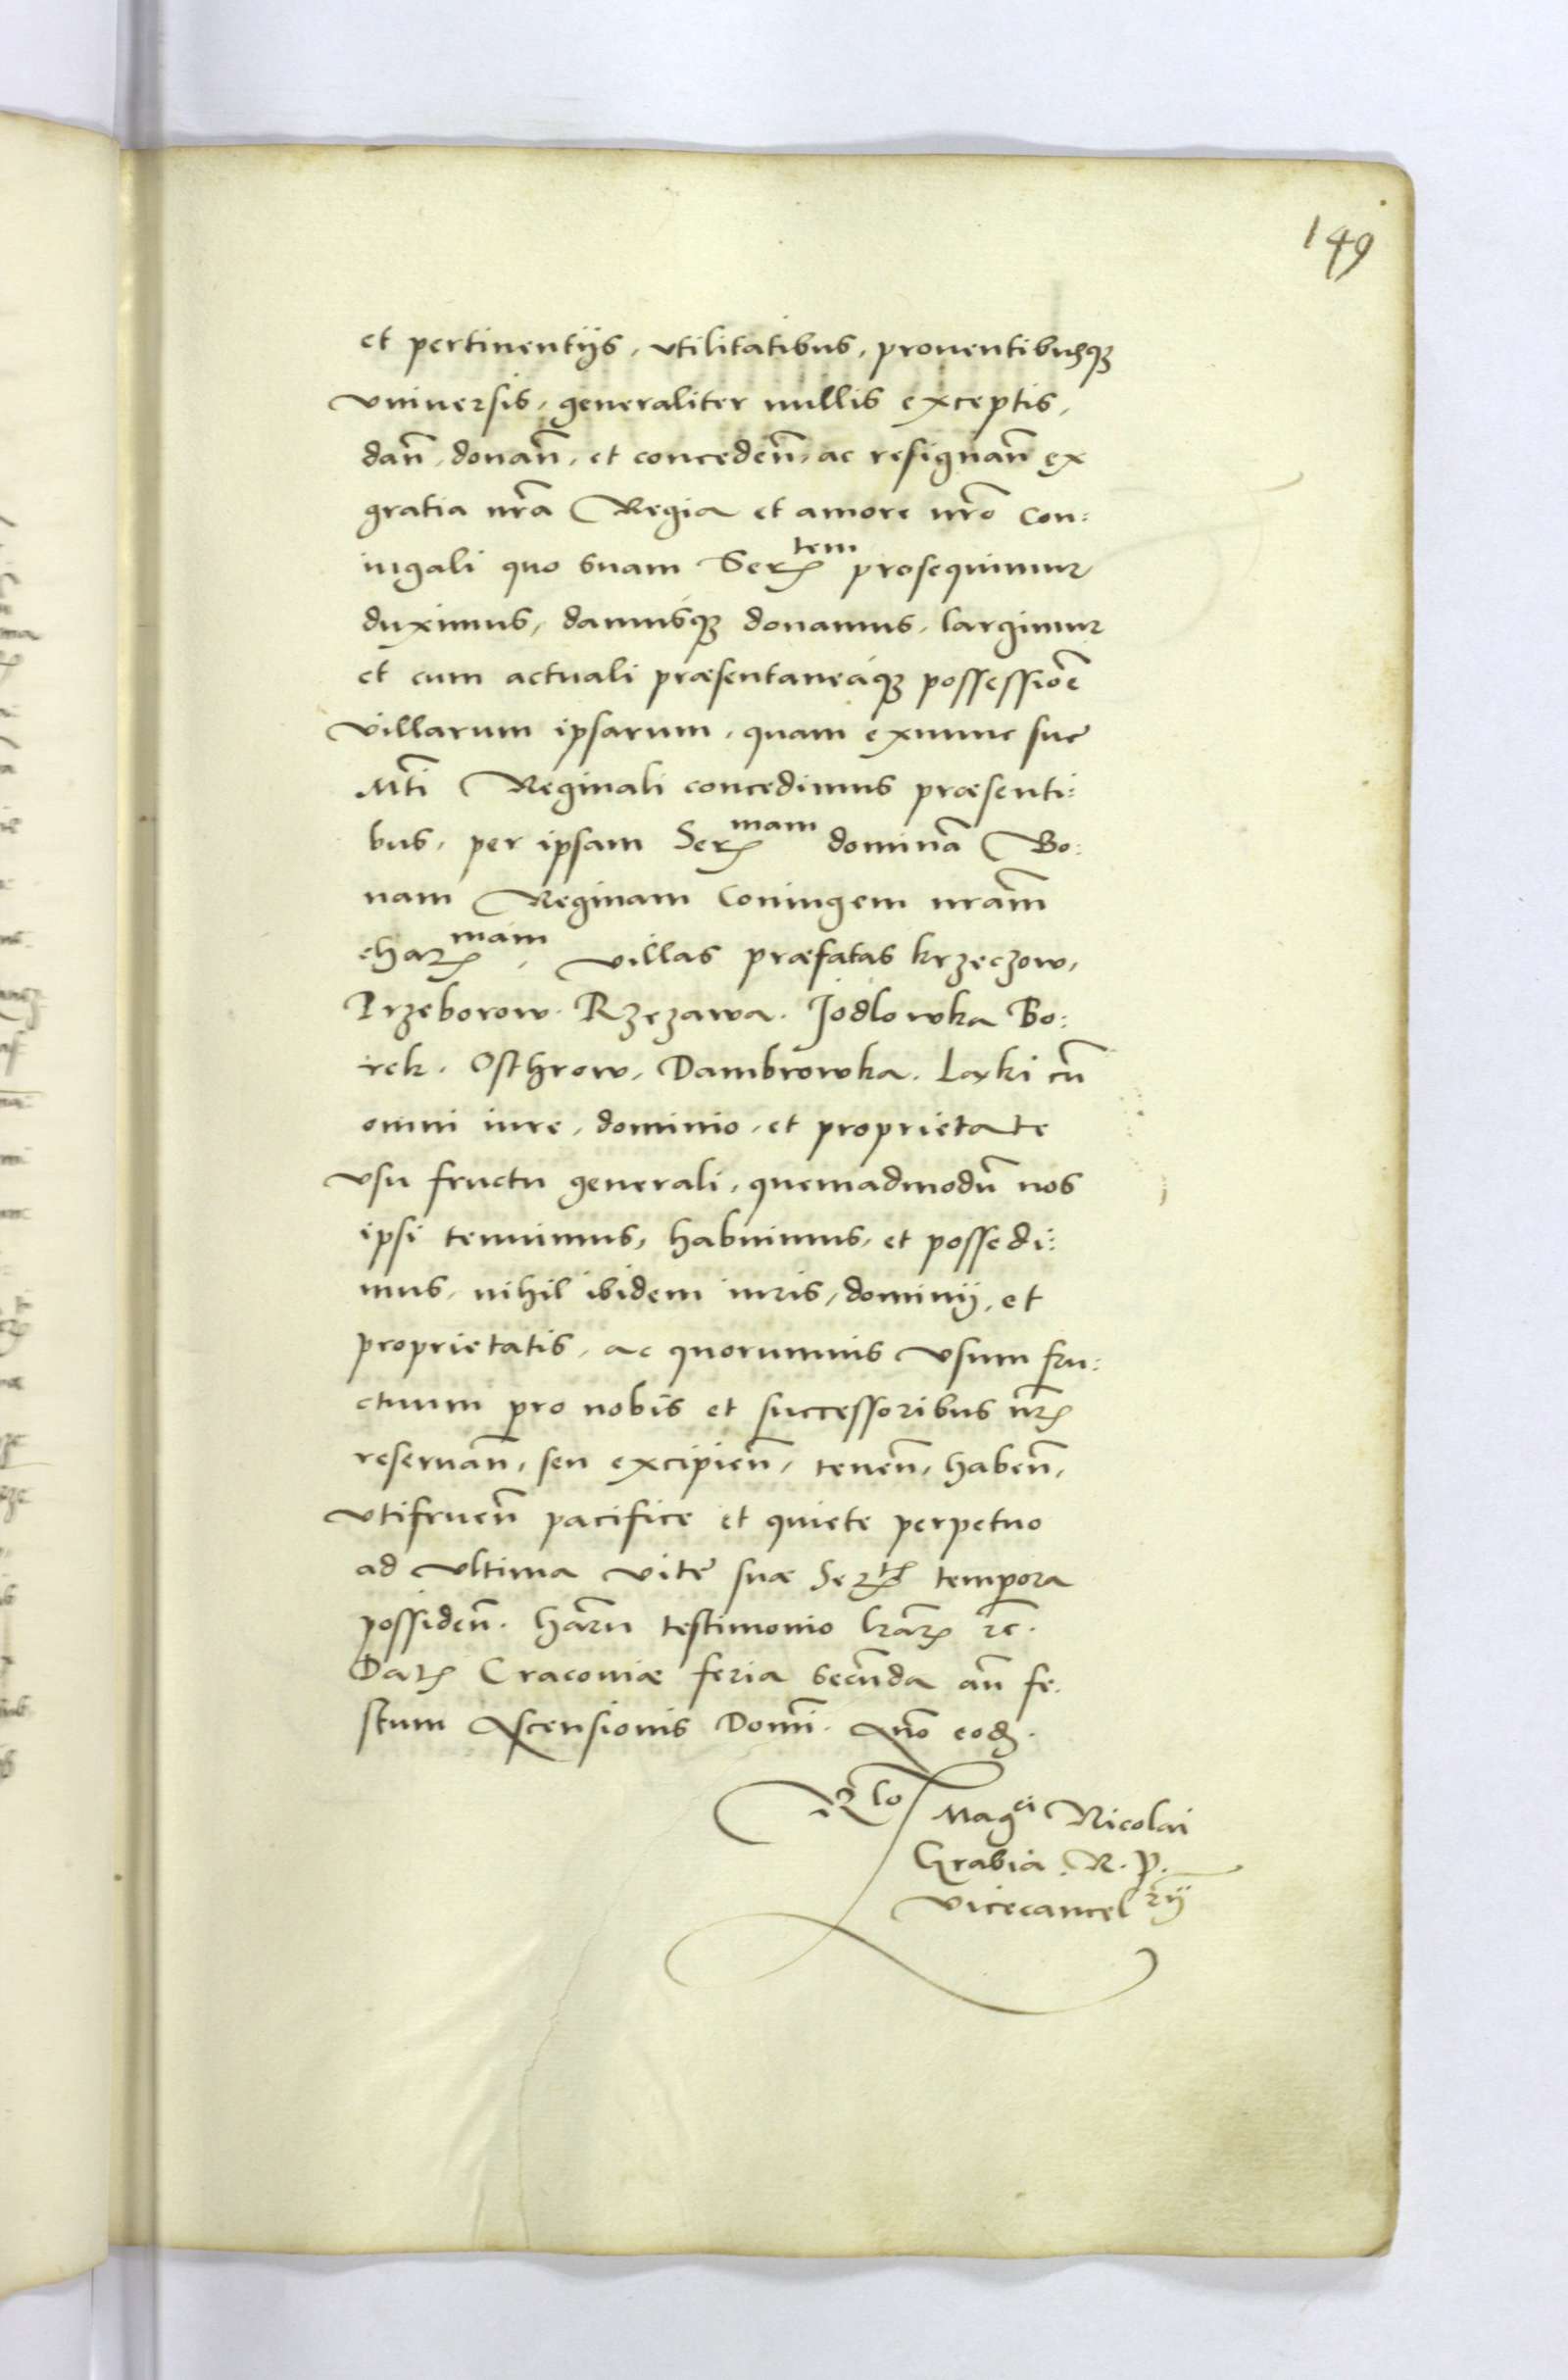 149
et pertinentijs, vtilitatibus, prouentibusq₃
vniuersis, generaliter nullis exceptis,
dan̄, donan̄, et conceden̄, ac resignan̄ ex
gratia nr̄a Regia et amore nr̄o con:
iugali quo suam Serᵗᵉᵐ prosequimur
duximus, damusq₃ donamus, largimur
et cum actuali præsentaneáq₃ possessiōe
villarum ipsarum, quam exnunc sue
Mt̄i Reginali concedimus præsenti:
bus, per ipsam Serᵐᵃᵐ dominā Bo:
nam Reginam Coniugem nr̄am
charᵐᵃᵐ, villas præfatas krzeczow,
Przeborow. Rzezawa. Jodlowka Bo:
rek. Osthrow, Dambrowka. Laxki cū
omni iure, dominio, et proprietate
vsu fructu generali, quemadmodū nos
ipsi tenuimus, habuimus, et possedi:
mus, nihil ibidem iuris, dominij, et
proprietatis, ac quorumuis vsum fru:
ctuum pro nobis et successoribus nr̄is
reseruan̄, seu excipien̄, tenen̄, haben̄,
vtifruen̄ pacifice et quiete perpetuo
ad vltima vite suæ Serᵗⁱˢ tempora
possiden̄. harū testimonio lr̄arum rc̄.
Datum Cracouiæ feria secūda an̄ fe.
stum Ascensionis Domī. Anō eod.
Rlo Magᶜⁱ Nicolai
Grabia. R. P.
vicecancelʳⁱʲ